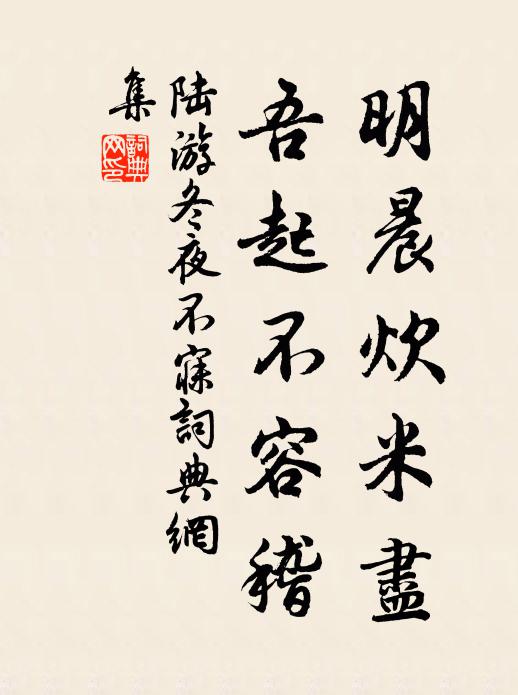 明晨炊米盡
吾起不容稽
陆游冬夜不寐詞典網
集
詞典网印